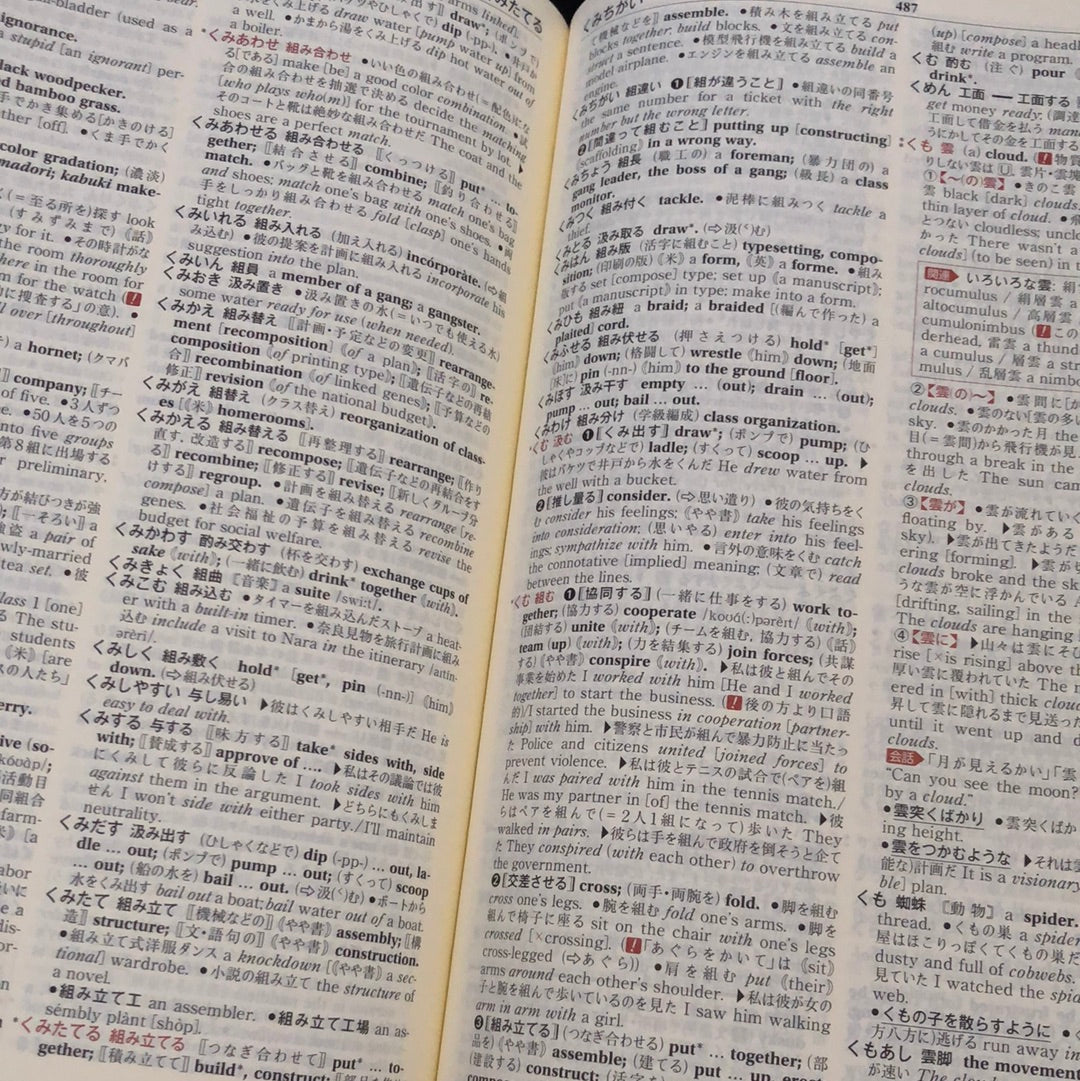 くみたてる
arms linked).
み出す〛 draw*; (ポンプで)
くみ上げる draw water up from
a well. •かまから湯をくみ上げる dip hot water out of
a boiler.
*くみあわせ 組み合わせ •いい色の組み合わせ(=配色)に
[である] make [be] a good color combination. •試
合の組み合わせを抽選で決める decide the matching
[who plays who(m)] for the tournament by lot. ▶
そのコートと靴は絶妙な組み合わせだ The coat and the
shoes are a perfect match.
くみあわせる 組み合わせる 〚くっつける〛 put* … to-
gether; 〚結合させる〛 combine; 〚釣り合わせる〛
match. •バッグと靴を組み合わせる match one's bag
and shoes; match one's bag with one's shoes. •両
手をしっかり組み合わせる fold [clasp] one's hands
tight together.
くみいれる 組み入れる (加え入れる) incórporàte. (⇨組
み込む) •彼の提案を計画に組み入れる incorporate his
suggestion into the plan.
くみいん 組員 a member of a gang; a gangster.
くみおき 汲み置き •汲み置きの水(=いつでも使える水)
some water ready for use (when needed).
くみかえ 組み替え 〚計画・予定などの変更〛 rearrange-
ment [recomposition] 《of a plan》; 〚活字の〛 re-
composition 《of printing type》; 〚遺伝子などの再結
合〛 recombination 《of linked genes》; 〚予算などの
修正〛 revision 《of the national budget》.
くみがえ 組替え (クラス替え) reorganization of class-
es [《米》 homerooms].
くみかえる 組み替える 〚再整理する〛 rearrange; 〚作り
直す, 改造する〛 recompose; 〚遺伝子などの再結合をす
る〛 recombine; 〚修正する〛 revise; 〚新しくグループ分
けする〛 regroup. •計画を組み替える rearrange [re-
compose] a plan. •遺伝子を組み替える recombine
genes. •社会福祉の予算を組み替える revise the
budget for social welfare.
くみかわす 酌み交わす (杯を交わす) exchange cups of
sake 《with》; (一緒に飲む) drink* together 《with》.
くみきょく 組曲 〚音楽〛 a suite /swíːt/.
くみこむ 組み込む •タイマーを組み込んだストーブ a heat-
er with a built-in timer. •奈良見物を旅行計画に組み
込む include a visit to Nara in the itinerary /aitín-
ərèri/.
くみしく 組み敷く hold* [get*, pin (-nn-)] 《him》
down. (⇨組み伏せる)
くみしやすい 与し易い ▶彼はくみしやすい相手だ He is
easy to deal with.
くみする 与する 〚味方する〛 take* sides with, side
with; 〚賛成する〛 approve of …. ▶私はその議論では彼
にくみして彼らに反論した I took sides with him
against them in the argument. ▶どちらにもくみしま
せん I won't side with either party./I'll maintain
neutrality.
くみだす 汲み出す (ひしゃくなどで) dip (-pp-) … out, la-
dle … out; (ポンプで) pump … out; (すくって) scoop
… out; (船の水を) bail … out. (⇨汲(く)む) •ボートから
水をくみ出す bail out a boat; bail water out of a boat.
くみたて 組み立て 〚機械などの〛《やや書》 assembly; 〚構
造〛 structure; 〚文・語句の〛《やや書》 construction.
•組み立て式洋服ダンス a knockdown [《やや書》 a sec-
tional] wardrobe. •小説の組み立て the structure of
a novel.
•組み立て工 an assembler. •組み立て工場 an as-
sémbly plànt [shòp].
*くみたてる 組み立てる 〚つなぎ合わせて〛 put* … to-
gether; 〚積み立てて〛 build*, construct;
くみちがい
487
て機械などを〛 assemble. •積み木を組み立てる put
blocks together; build blocks. •文を組み立てる con-
struct a sentence. •模型飛行機を組み立てる build a
model airplane. •エンジンを組み立てる assemble an
engine.
くみちがい 組違い ❶[組が違うこと] •組違いの同番号
the same number for a ticket with the right
number but the wrong letter.
❷[間違って組むこと] putting up [constructing]
《scaffolding》 in a wrong way.
くみちょう 組長 (職工の) a foreman; (暴力団の) a
gang leader, the boss of a gang; (級長) a class
monitor.
くみつく 組み付く tackle. •泥棒に組みつく tackle a
thief.
くみとる 汲み取る draw*. (⇨汲(く)む)
くみはん 組み版 (活字に組むこと) typesetting, compo-
sition; (印刷の版) 《米》 a form, 《英》 a forme. •組み
版する set [compose] type; set up 《a manuscript》;
put 《a manuscript》 in type; make into a form.
くみひも 組み紐 a braid; a braided [(編んで作った) a
plaited] cord.
くみふせる 組み伏せる (押さえつける) hold* [get*]
《him》 down; (格闘して) wrestle 《him》 down; (地面
[床]に) pin (-nn-) 《him》 to the ground [floor].
くみほす 汲み干す empty … (out); drain … (out);
pump … out; bail … out.
くみわけ 組み分け (学級編成) class organization.
*くむ 汲む ❶[くみ出す] draw*; (ポンプで) pump; (ひ
しゃくやコップなどで) ladle; (すくって) scoop … up. ▶
彼はバケツで井戸から水をくんだ He drew water from
the well with a bucket.
❷[推し量る] consider. (⇨思い遣り) •彼の気持ちをく
む consider his feelings; 《やや書》 take his feelings
into consideration; (思いやる) enter into his feel-
ings; sympathize with him. •言外の意味をくむ catch
the connotative [implied] meaning; (文章で) read
between the lines.
*くむ 組む ❶[協同する] (一緒に仕事をする) work to-
gether; (協力する) cooperate /kouá(ː)pərèit/ 《with》;
(団結する) unite 《with》; (チームを組む, 協力する) 《話》
team (up) 《with》; (力を結集する) join forces; (共謀
する) 《やや書》 conspire 《with》. ▶私は彼と組んでその
事業を始めた I worked with him [He and I worked
together] to start the business. (❗後の方より口語
的)/I started the business in cooperation [partner-
ship] with him. ▶警察と市民が組んで暴力防止に当たっ
た Police and citizens united [joined forces] to
prevent violence. ▶私は彼とテニスの試合で(ペアを)組
んだ I was paired with him in the tennis match./
He was my partner in [of] the tennis match. ▶彼
らはペアを組んで(=2人1組になって)歩いた They
walked in pairs. ▶彼らは手を組んで政府を倒そうと企て
た They conspired (with each other) to overthrow
the government.
❷[交差させる] cross; (両手・両腕を) fold. •脚を組む
cross one's legs. •腕を組む fold one's arms. •脚を
組んで椅子に座る sit on the chair with one's legs
crossed [×crossing]. (❗「あぐらをかいて」は 《sit》
cross-legged (⇨あぐら)) •肩を組む put 《their》
arms around each other's shoulder. ▶私は彼が女の
子と腕を組んで歩いているのを見た I saw him walking
arm in arm with a girl.
❸[組み立てる] (つなぎ合わせる) put* … together; (部
品を) 《やや書》 assemble; (建てる) put … up, erect
(建設する) construct; (活字を)
(up) [compose] a headl
組む write a program.
くむ 酌む (注ぐ) pour
drink*.
くめん 工面 ― 工面する
get money ready; (調達
工面して借金を払う man
うにかしてその金を工面する
*くも 雲 (a) cloud. (❗物質
りしない雲は U. 雲片・雲塊
①【〜(の)雲】 •きのこ雲
雲 black [dark] clouds
thin layer of cloud. •
とつない cloudless; uncl
かった There wasn't a
clouds] (to be seen) in t
関連 いろいろな雲: 絹
rocumulus / 絹層雲 a
altocumulus / 高層雲
cumulonimbus (❗この
derhead, 雷雲 a thund
a cumulus / 層雲 a str
mulus / 乱層雲 a nimb
②【雲(の)〜】 •雲間に[か
clouds. •雲のない[雲の多い
sky. •雲のかかった月 the
目(=雲間)から飛行機が見え
through a break in the
を出した The sun cam
clouds.
③【雲が】 •雲が流れていく
floating by. ▶雲がある
sky). ▶雲が出てきたようだ
ering [forming].
clouds broke and the sk
うな雲が空に浮かんでいる A
[drifting, sailing] in the
The clouds are hanging
④【雲に】 ▶山々は雲にそび
rise [×is rising] above th
厚い雲に覆われていた The m
ered in [with] thick cloud
昇して雲に隠れるまで見送った
until it went up and d
clouds.
会話 「月が見えるかい」「雲
“Can you see the moon?
by a cloud.”
•雲突くばかり •雲突くばか
ing height.
•雲をつかむような ▶それは雲
能な)計画だ It is a visionary
ble] plan.
くも 蜘蛛 〚動物〛 a spider.
thread. •くもの巣 a spider
屋はほこりっぽくてくもの巣だ
dusty and full of cobwebs.
見ていた I watched the spid
web.
•くもの子を散らすように •
方八方に)逃げる run away in
くもあし 雲脚 the movemen
が速い The clou
ignorance.
a stupid [an ignorant] per-
black woodpecker.
bamboo grass.
手でかき集める[かきのける]
ther [off]. •くま手でかく
color gradation; (濃淡)
madori; kabuki make-
(=至る所を)探す look
(すみずみまで) 《話》
ty for it. •その時計がな
room thoroughly
where in the room for
for the watch (❗
に捜査する」の意). •
all over [throughout]
a hornet; (クマバ
company; 〚チー
of five. •3人ずつ
•50人を5つの
into five groups
第8組に出場する
preliminary.
方が結びつきが強
〚一そろい〛 a
強盗 a pair of
newly-married
tea set. •彼
class 1 [one]
The stu-
students
《米》 [are
スの人たち」